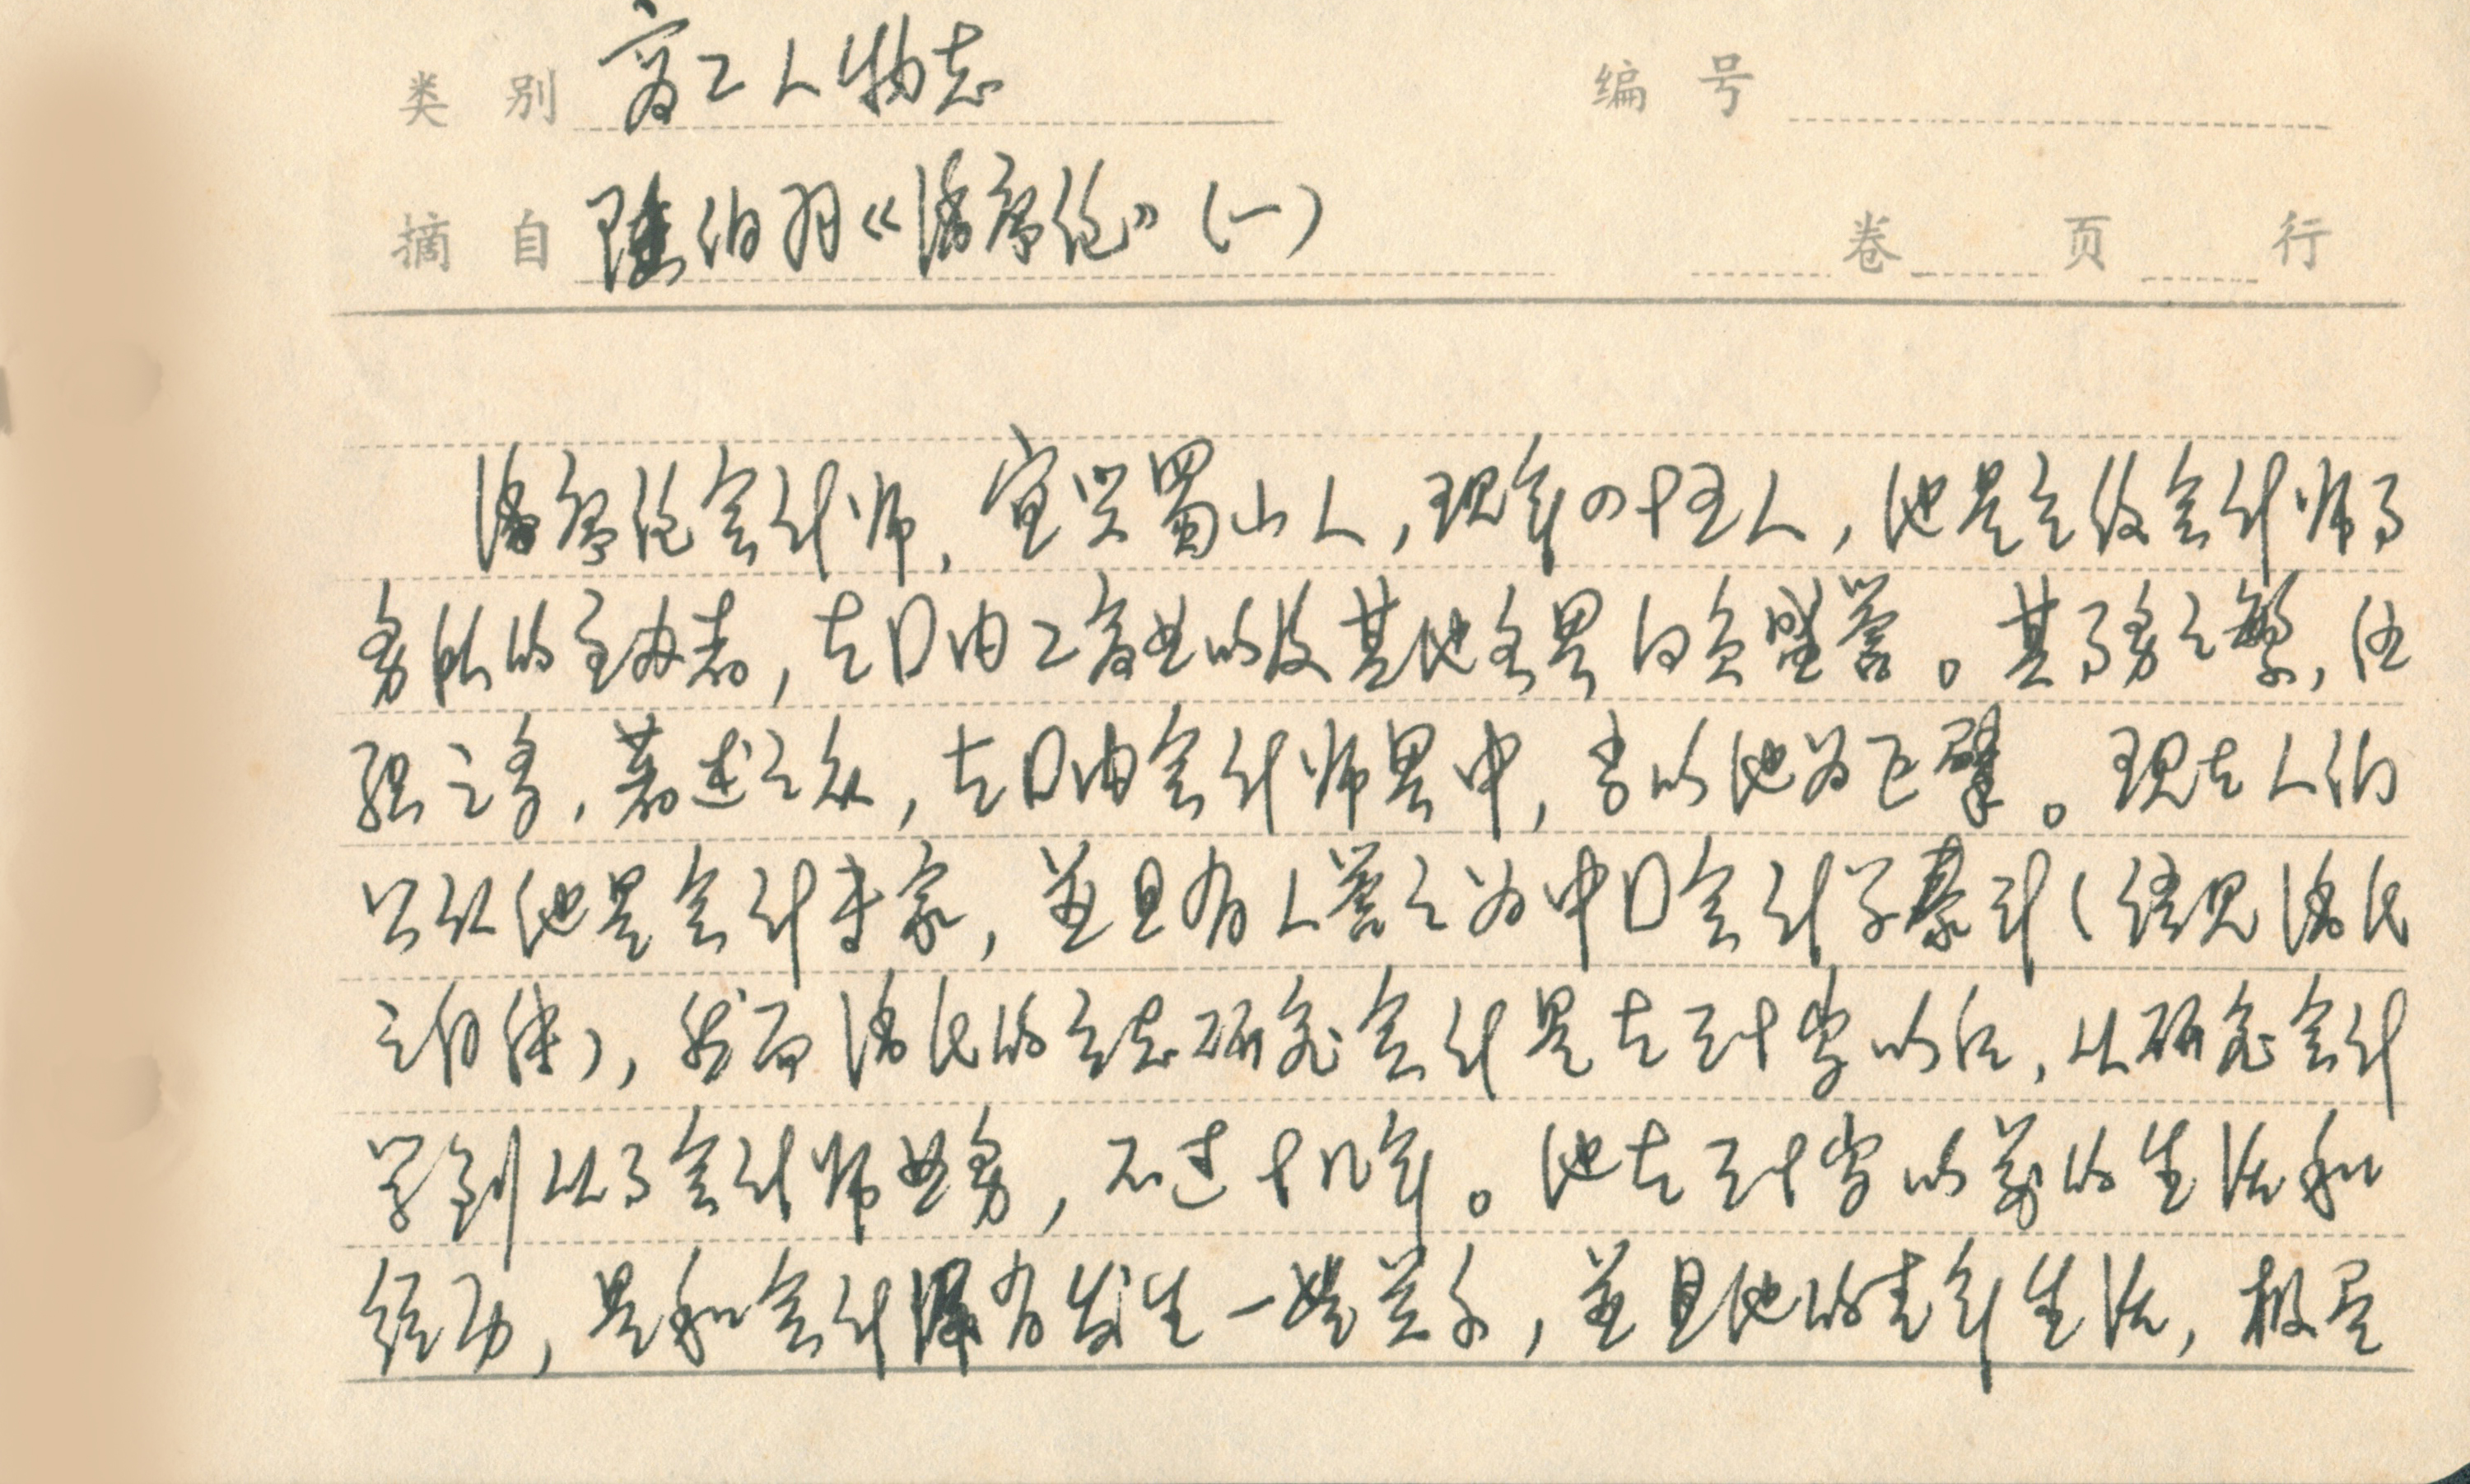 类别 商工人物志 编号
摘自 陆伯羽《潘序伦》(一) 卷 页 行
潘序伦会计师,宜兴蜀山人,现年四十五人,他是立信会计师事
务所的主办者,在囗内工商业以及其他各界负望誉。其事务之繁,任
职之多,著述之众,在囗内会计师界中,当以他为巨擘。现在人们
公认他是会计专家,並且有人誉之为中囗会计学泰斗(语见潘氏
之自传),然而潘氏的立志研究会计是在三十岁以后,从研究会计
学到从事会计师业务,不过十几年。他在三十岁以前的生活和
经历,是和会计没有发生一些关系,並且他的青年生活,极尽